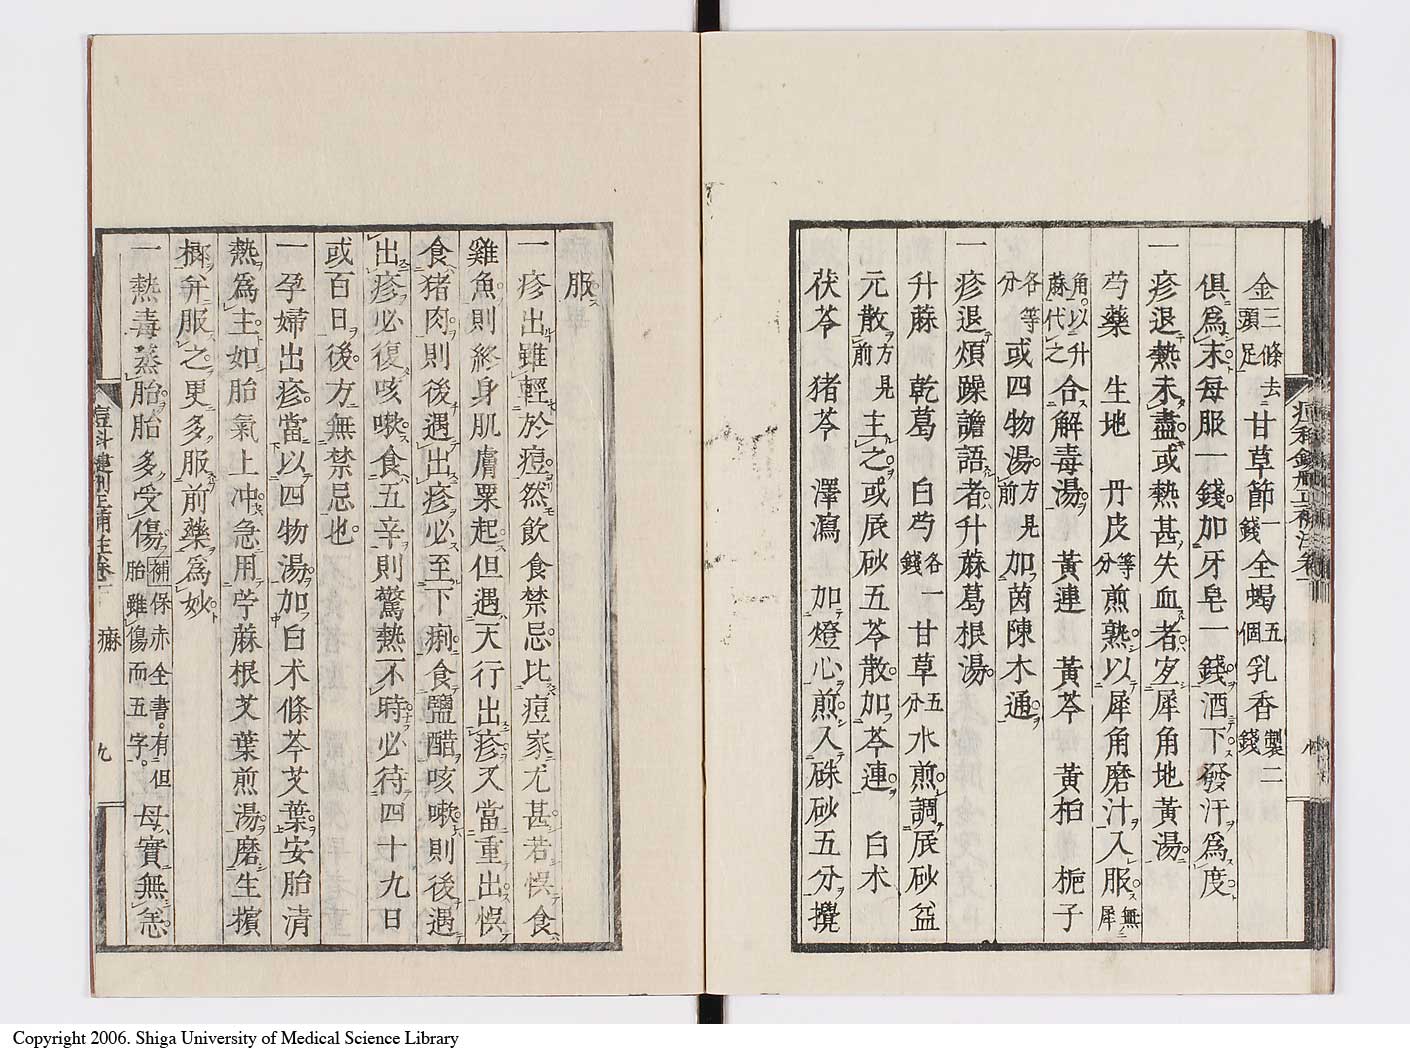 金三條去頭足甘草節一錢全蝎五個乳香製二錢
俱爲末每服一錢加牙皂一錢酒下發汗爲度
一疹退熱未盡或熱甚失血者宜犀角地黃湯
芍藥 生地 丹皮等分煎熟以犀角磨汁入服無犀
角以升蔴代之合解毒湯 黃連 黃芩 黃柏 梔子
各等分或四物湯方見前加茵陳木通
一疹退煩躁譫語者升蔴葛根湯
升蔴 乾葛 白芍各一錢甘草五分水煎調辰砂益
元散方見前主之或辰砂五苓散加芩連 白朮
茯苓 猪苓 澤瀉 加燈心煎入硃砂五分攪
服
一疹出雖輕於痘然飲食禁忌比痘家尤甚若悞食
雞魚則終身肌膚粟起但遇天行出疹又當重出悞
食猪肉則後遇出疹必至下痢食鹽醋咳嗽則後遇
出疹必復咳嗽食五辛則驚熱不時必待四十九日
或百日後方無禁忌也
一孕婦出疹當以四物湯加白朮條芩艾葉安胎清
熱爲主如胎氣上冲急用苧蔴根艾葉煎湯磨生擯
榔并服之更多服前藥爲妙
一熱毒蒸胎胎多受傷補保赤全書有但胎雖傷而五字母實無恙
痲 九
Copyright 2006. Shiga University of Medical Science Library